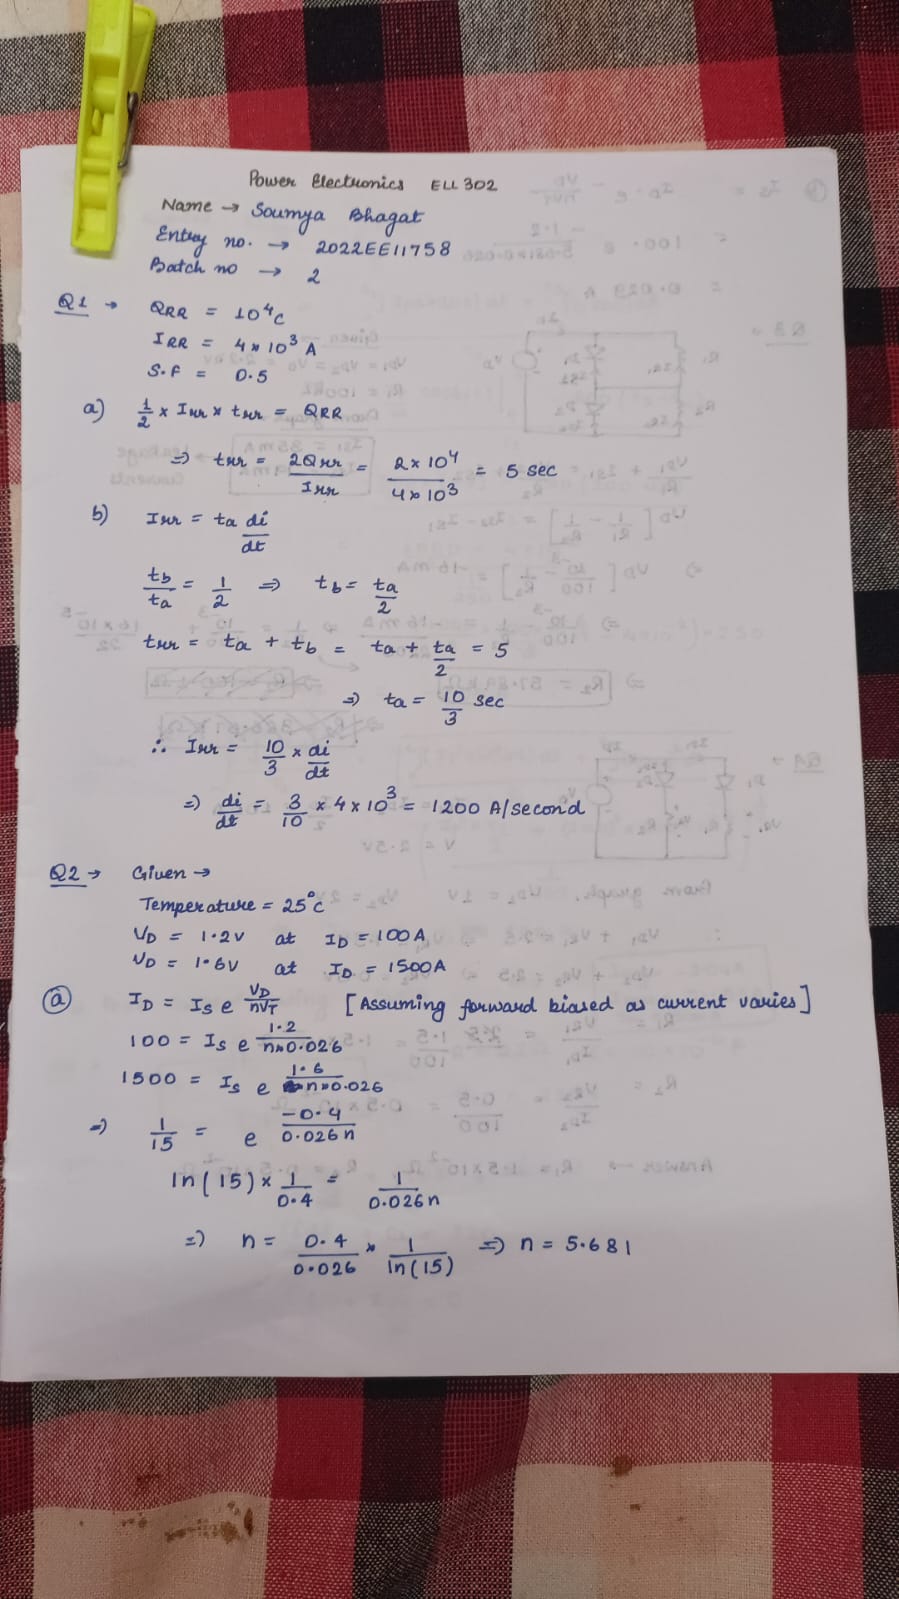 Power Electronics ELL 302
Name → Soumya Bhagat
Entry no. → 2022EE11758
Batch no → 2
Q1 → QRR = 10⁴C
IRR = 4 × 10³ A
S.f = 0.5
a) 1/2 × Irr × trr = QRR
⇒ trr = 2Qrr/Irr = 2 × 10⁴/4 × 10³ = 5 sec
b) Irr = ta di/dt
tb/ta = 1/2 ⇒ tb = ta/2
trr = ta + tb = ta + ta/2 = 5
⇒ ta = 10/3 sec
∴ Irr = 10/3 × di/dt
⇒ di/dt = 3/10 × 4 × 10³ = 1200 A/second
Q2 → Given →
Temperature = 25°c
VD = 1.2V at ID = 100A
VD = 1.6V at ID = 1500A
(a) ID = Is e^(VD/nVT) [Assuming forward biased as current varies]
100 = Is e^(1.2/n×0.026)
1500 = Is e^(1.6/n×0.026)
⇒ 1/15 = e^(-0.4/0.026n)
ln(15) × 1/0.4 = 1/0.026n
⇒ n = 0.4/0.026 × 1/ln(15) ⇒ n = 5.681